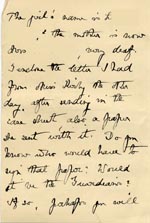 The girl's name is L
"the mother is now
Mrs , very deaf.
I enclose the letter I had
from Miss Kirby the other
day, after sending in the
case sheet also a paper
he sent with it. Do you
know who would have to
sign that paper? Would
it be the Guardians?
If so, perhaps you will